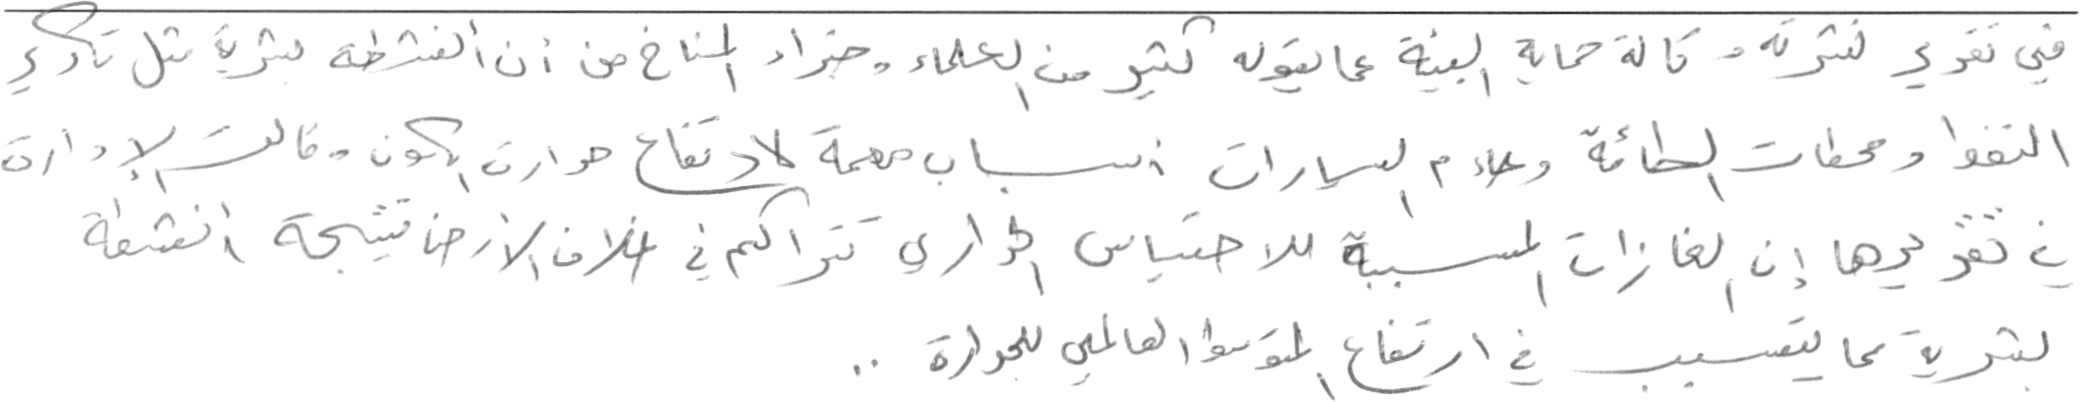 في تقرير نشرته وكالة حماية البيئة عما يقوله كثير من العلماء وخبراء المناخ من أن أنشطة بشرية مثل تكرير
النفط ومحطات الطاقة وعادم السيارات أسباب مهمة لارتفاع حرارة الكون وقالت الإدارة
في تقريرها إن الغازات المسببة للاحتباس الحراري تتراكم في غلاف الأرض نتيجة أنشطة
بشرية مما يتسبب في ارتفاع المتوسط العالمي للحرارة ..